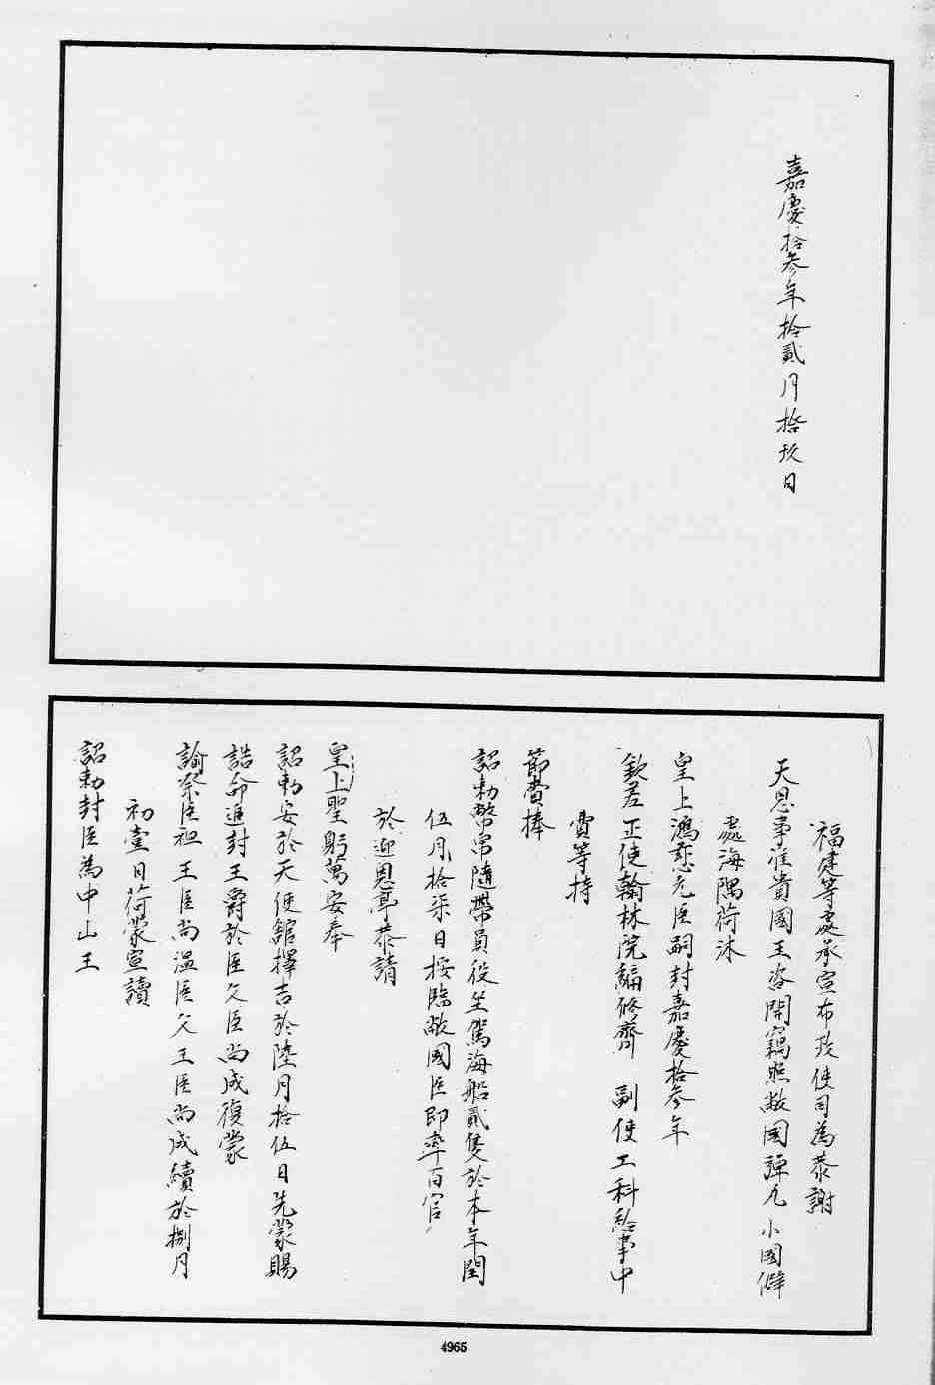 嘉慶拾叁年拾貳月拾玖日
福建等處承宣布政使司為恭謝
天恩事准貴國王咨開竊照敝國彈丸小國僻
處海隅荷沐
皇上鴻慈允臣嗣封嘉慶拾叁年
欽差正使翰林院編修齊 副使工科給事中
費等持
節賫捧
詔勅幣帛隨帶員役坐駕海船貳隻於本年閏
伍月拾柒日按臨敝國臣即率百官
於迎恩亭恭請
皇上聖躬萬安奉
詔勅安於天使舘擇吉於陸月拾伍日先蒙賜
誥命進封王爵於臣父臣尚成復蒙
諭祭臣祖王臣尚溫臣父王臣尚成續於捌月
初壹日荷蒙宣讀
詔勅封臣為中山王
4965